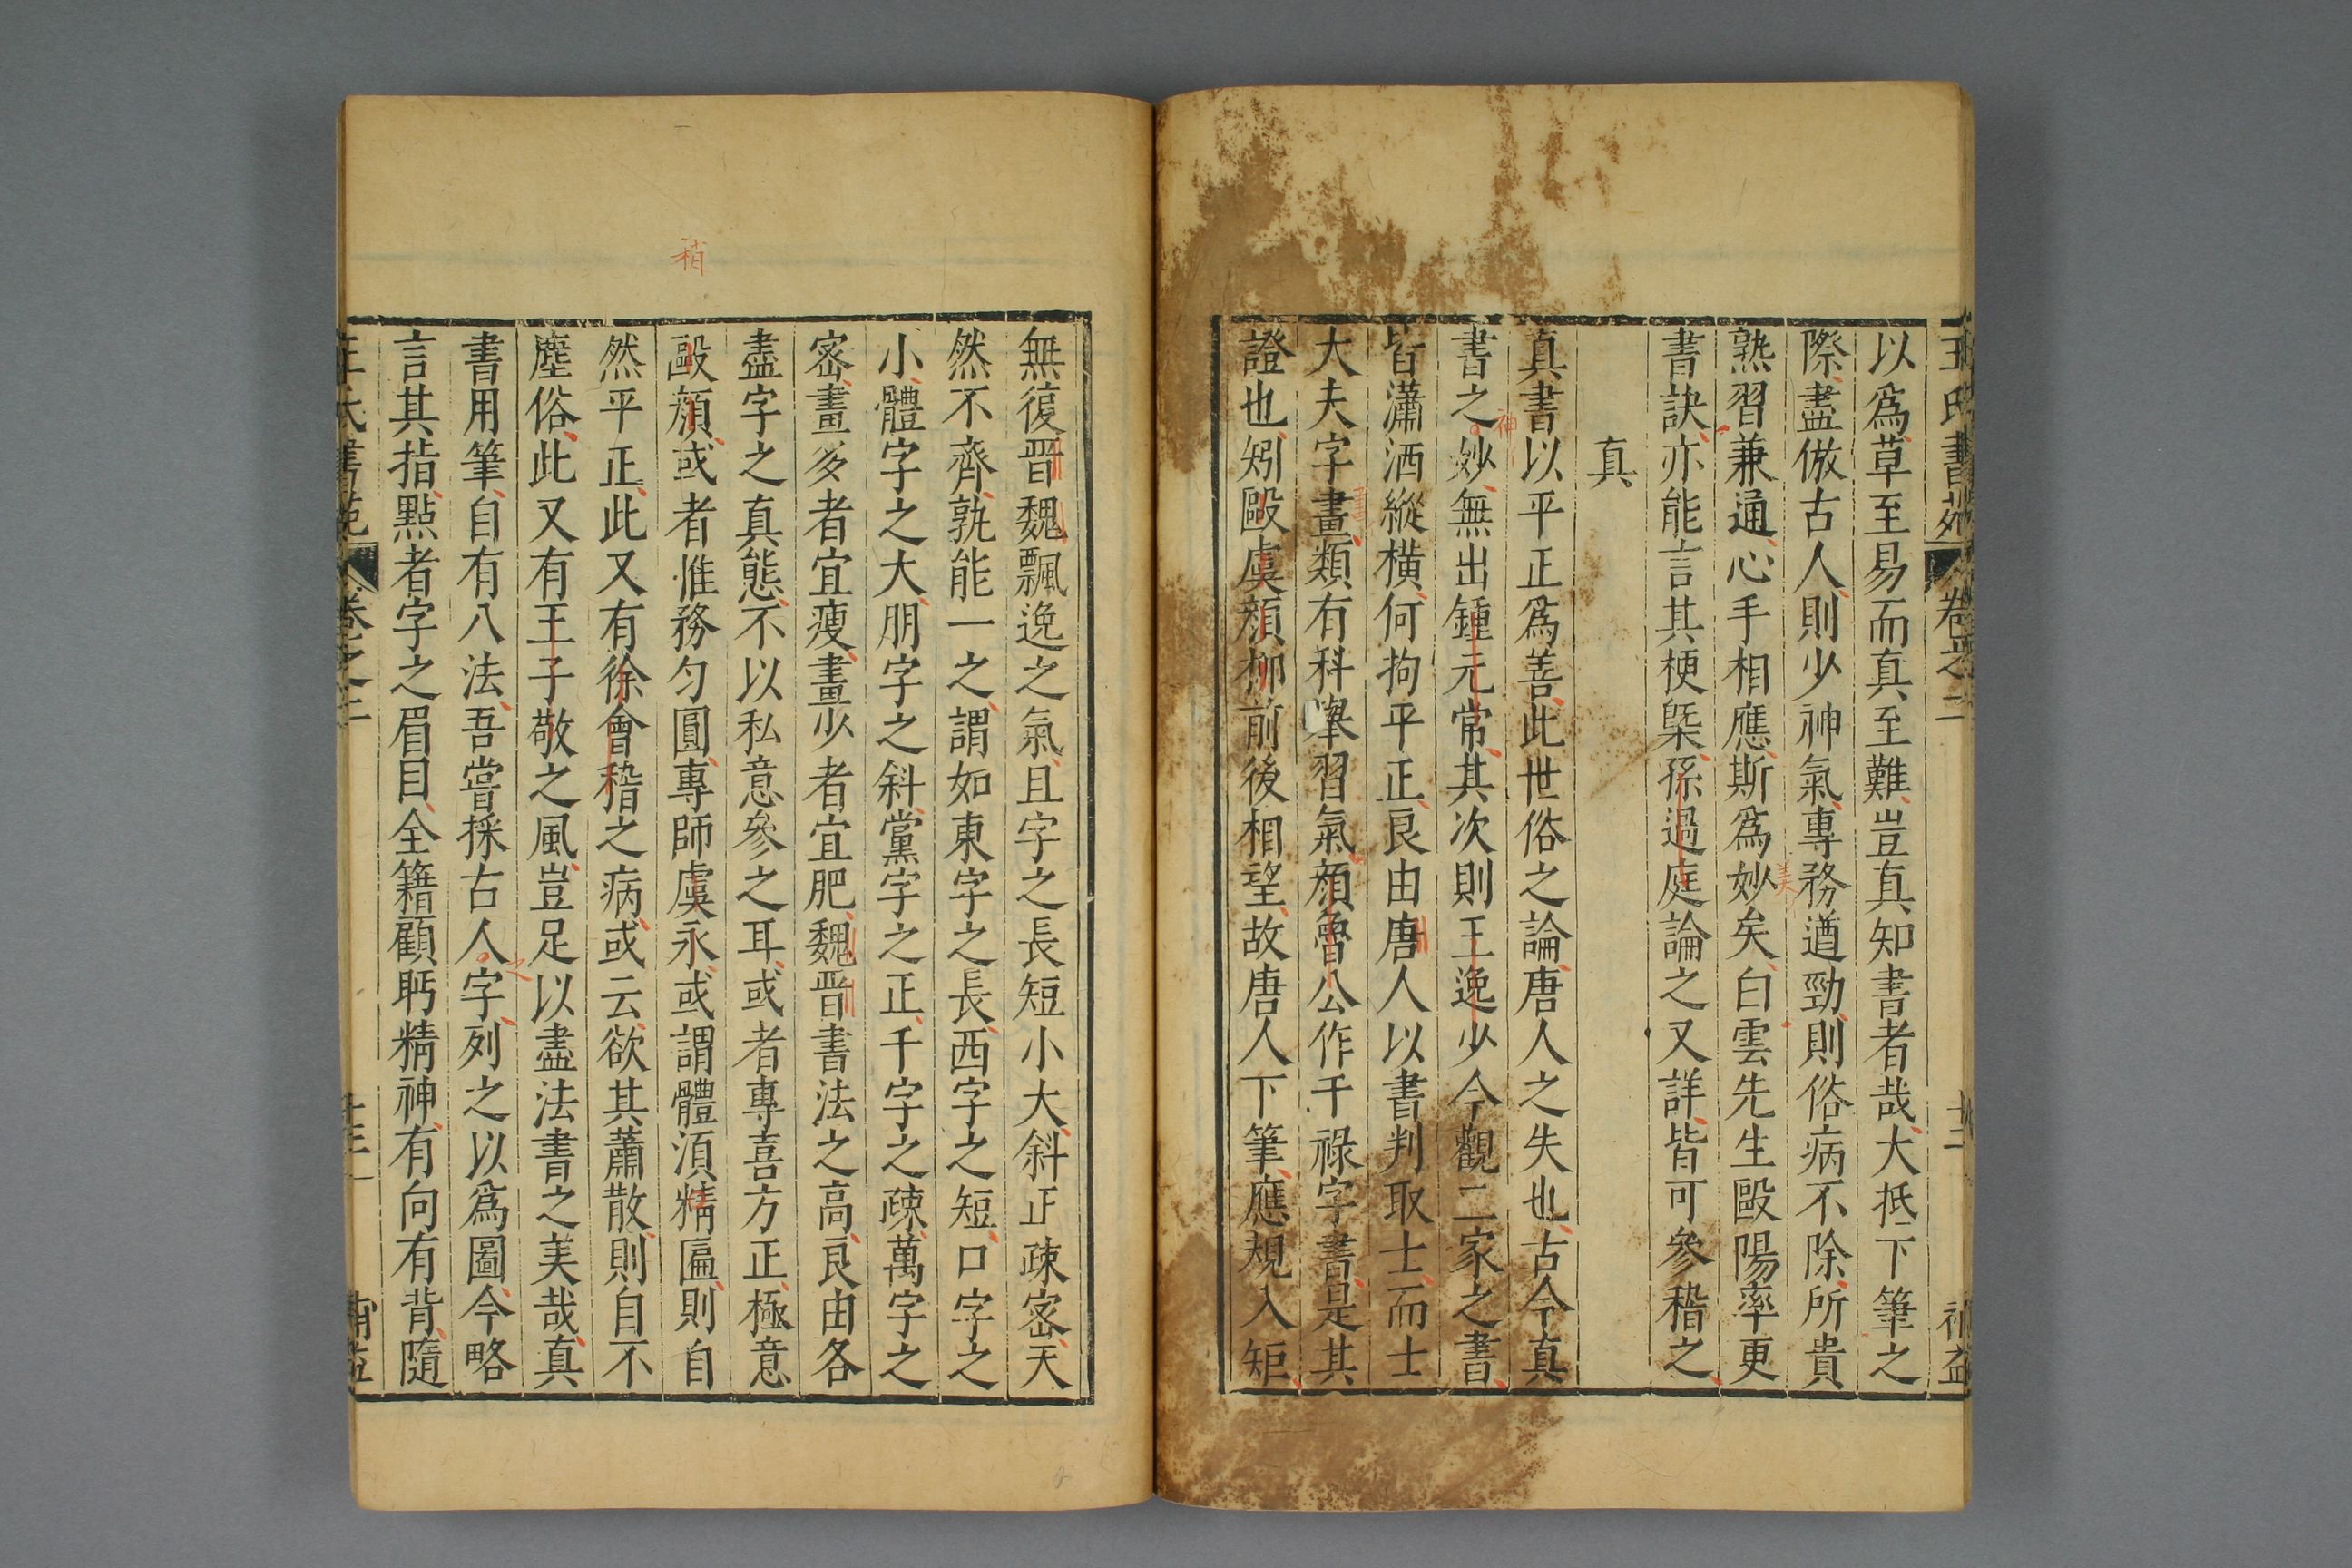 王氏書苑 卷之二 補益
以爲草至易而真至難豈真知書者哉大抵下筆之
際盡倣古人則少神氣專務遒勁則俗病不除所貴
熟習兼通心手相應斯爲妙矣白雲先生歐陽率更
美
書訣亦能言其梗槩孫過庭論之又詳皆可參稽之
真
真書以平正爲善此世俗之論唐人之失也古今真
書之妙無出鍾元常其次則王逸少今觀二家之書
神
皆瀟洒縱橫何拘平正良由唐人以書判取士而士
大夫字畫類有科舉習氣顔魯公作干祿字書是其
書
證也矧歐虞顔柳前後相望故唐人下筆應規入矩
無復晉魏飄逸之氣且字之長短小大斜正疎密天
然不齊孰能一之謂如東字之長西字之短口字之
小體字之大朋字之斜黨字之正千字之疎萬字之
密畫多者宜瘦畫少者宜肥魏晉書法之高良由各
盡字之真態不以私意參之耳或者專喜方正極意
歐顔或者惟務勻圓專師虞永或謂體湏精匾則自
稍
然平正此又有徐會稽之病或云欲其蕭散則自不
塵俗此又有王子敬之風豈足以盡法書之美哉真
書用筆自有八法吾嘗採古人字列之以爲圖今略
之
言其指點者字之眉目全籍顧眄精神有向有背隨
王氏書苑 卷之二 補益